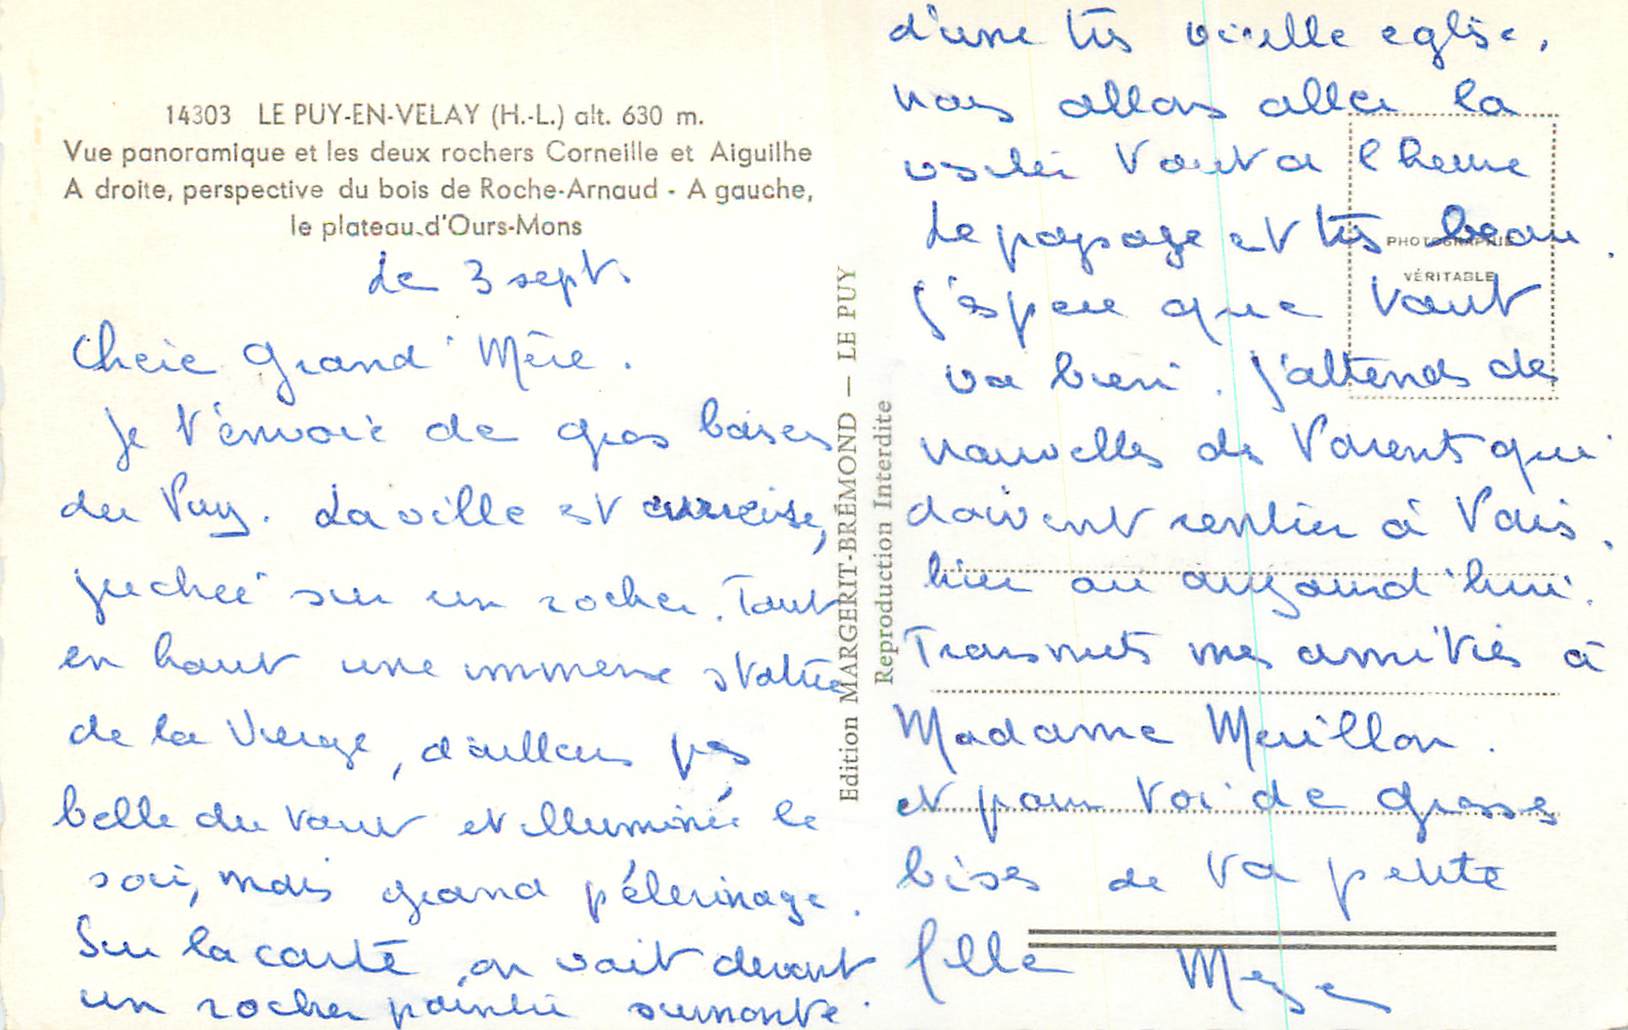 14303 LE PUY-EN-VELAY (H.-L.) alt. 630 m.
Vue panoramique et les deux rochers Corneille et Aiguilhe
A droite, perspective du bois de Roche-Arnaud - A gauche,
le plateau d'Ours-Mons
Le 3 sept.
Chère Grand'Mère.
Je t'envoie de gros baisers
du Puy. La ville est curieuse,
juchée sur un rocher. Tout
en haut une immense statue
de la Vierge, d'ailleurs pas
belle du tout et illuminée le
soir, mais grand pélerinage.
Sur la carte, on voit devant
un rocher pointu surmonté
d'une très vieille eglise,
nous allons aller la
visiter tout a l'heure
Le paysage est très beau.
J'espere que tout
va bien. J'attends des
nouvelles des Parents qui
doivent rentrer à Paris,
hier ou aujourd'hui.
Transmets mes amitiés à
Madame
et pour toi de grosses
bises de ta petite
fille
Edition MARGERIT-BRÉMOND — LE PUY
Reproduction Interdite
PHOTOGRAPHIE
VÉRITABLE